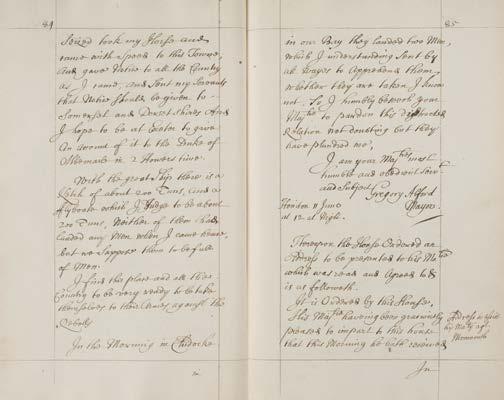 84
Seized took my Horse and
came with Speed to this Towne,
and gave Notice to all the Country
as I came, and Sent my Servants
that Notice Should be given to
Somerset and Dorset Shires And
I hope to be at Exeter to give
an account of it to the Duke of
Albemarle in 2 howers time.
With the great Ship there is a
Ketch of about 200 Tuns, and a
flyboate which I Judge to be about
200 Tuns, Neither of them had
landed any Men when I came hence,
but we Suppose them to be full
of Men.
I find this place and all this
Country to be very ready to betake
themselves to their Armes against the
Rebells
In the Morning in Chidocke
in
85
in our Bay they landed two Men,
which I understanding Sent by
all wayes to Apprehend them,
whether they are taken I know
not. So I humbly beseech your
Matie to pardon this distracted
Relation not doubting but they
have plundred me,
I am your Maties most
humble and obedient Servt
and Subject Gregory Alford
Honiton 11 June Mayor
at 12 at Night.
Thereupon the House Ordered an
Address to be presented to his Matie
which was read and Agreed to &
is as followeth.
It is Ordered by this House,
His Matie haveing been graciously
pleased to impart to this house
that this Morning he hath received
Address to assist
his Maty agt
Monmouth
In